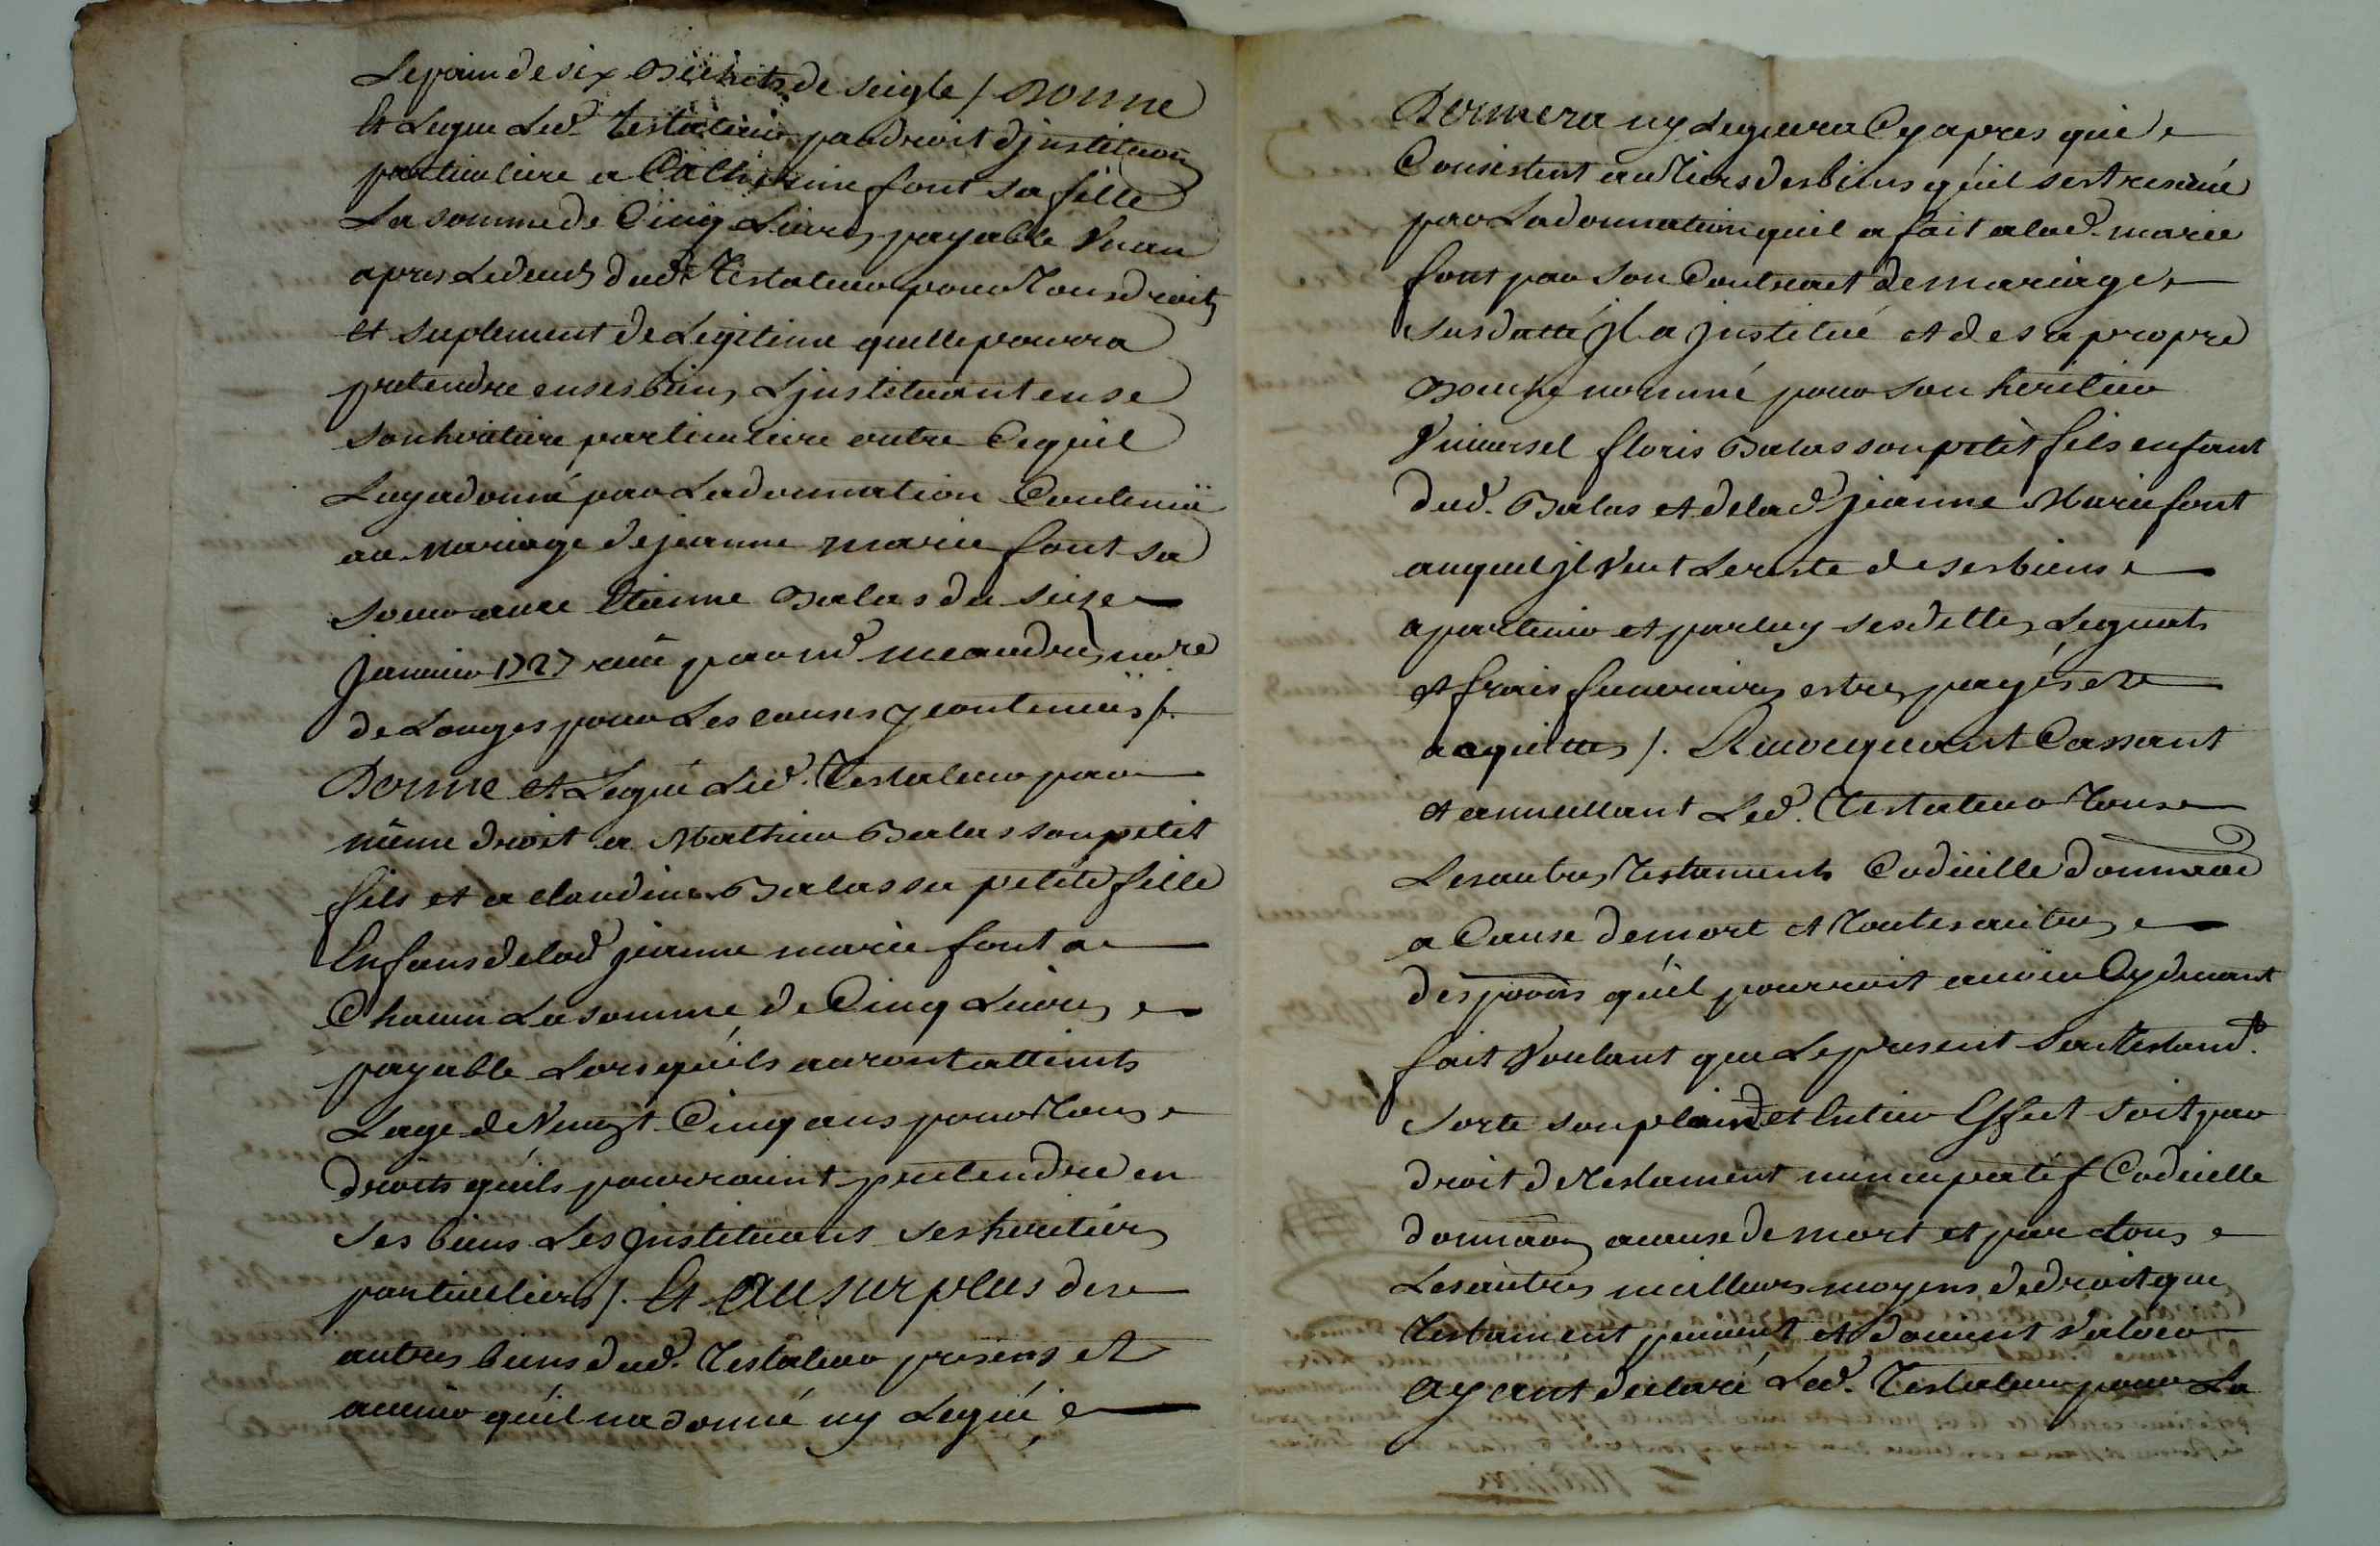 Le pain de six bichets de seigle / Donne
Et Legue Led. Testateur par droit d'jnstitution
particuliere a Catherine font sa fille
La somme de Cinq Livres payable Vn an
apres Le deces dud. Testateur pour Tous droits
et suplement de Legitime quelle pourra
pretendre en ses biens L'jnstituant en se
son heritiere particuliere outre Ce quil
Luy a donné par La donnation Contenuë
au Mariage de jeanne marie font sa
soeur avec Etienne Balas du seize
Janvier 1727 recü par md meandre no.re
de Longes pour Les causes y contenuës /.
Donne et Legue Led. Testateur par
même droit a Mathieu Balas son petit
fils et a claudine Balas sa petite fille
Enfans de lad jeanne marie font a
Chacun La somme de Cinq Livres
payable Lors quils auront attints
L'age de Vingt Cinq ans pour Tous
droits quils pourroint pretendre en
ses biens Les jnstituants ses heritiers
particuliers /. Et Au surplus des
autres biens dud. Testateur presens et
avenir qu'il na donné ny Legué
Donnera ny Leguera Cy apres qui
Consistent au Tiers des biens qu'il sest reservé
par La donnation quil a fait a lad. marie
font par son Contract de mariage
susdatté Jl a jnstitué et de sa propre
Bouche nommé pour son heritier
Vniversel floris Balas son petit fils enfant
dud. Balas et de lad jeanne Marie font
auquel jl veut Le reste de ses biens
apartenir et par luy ses dettes Leguats
et frais funeraires estres payés et
acquittes /. Revocquant Cassant
et annullant Led. Testateur Tous
Les autres Testaments Codicille donnaõn
a Cause de mort et Toutes autres
dispoons qu'il pourroit avoir Cy devant
fait Voulant que Le present son Testamt.
sorte son plain et Entier Effect soit par
droit de Testament nuncupatif Codicille
donnaõn a cause de mort et par tous
Les autres meilleurs moyens de droit que
Testament peuvent et doivent Valoir
ayant declaré Led. Testateur pour La